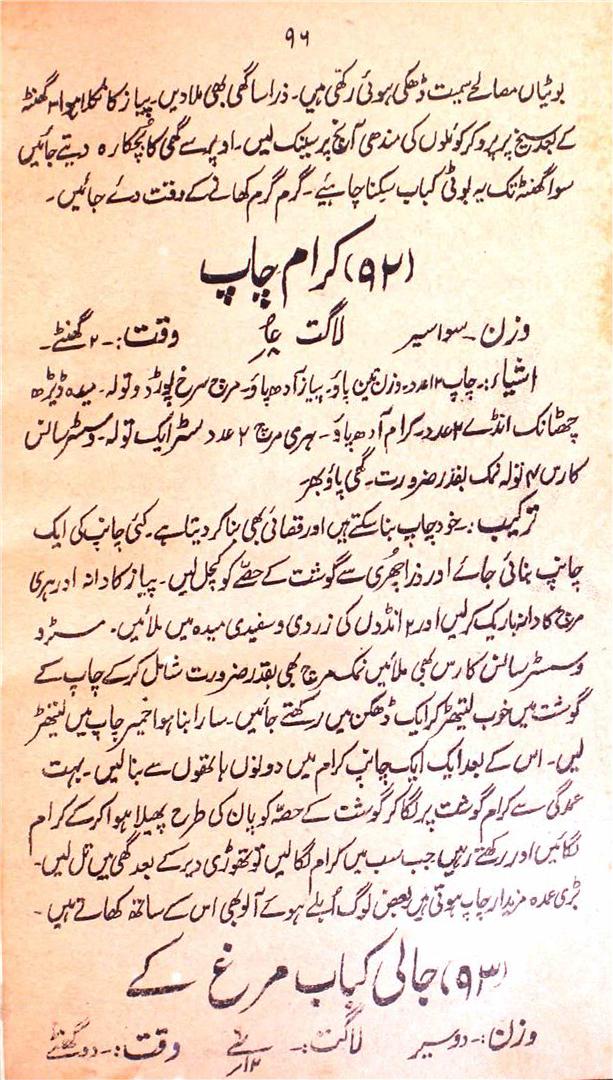 ۹۶
بوٹیاں مصالحے سمیت ڈھکی ہوئی رکھی ہیں۔ ذرا سا گھی بھی ملا دیں۔ پیاز کا گھلا ہوا ۳ گھنٹہ
کے بعد سیخ پر پرو کر کوئلوں کی مندھی آنچ پر سینک لیں۔ اوپر سے گھی کا پُچکارہ دیتے جائیں
سوا گھنٹہ تک یہ بوٹی کباب سِکنا چاہیئے۔ گرم گرم کھانے کے وقت دئے جائیں۔
(۹۲) کرام چاپ
وزن۔ سوا سیر لاگت وقت:۔ ۲ گھنٹے۔
اشیاء:۔ چاپ ۱۲ عدد۔ وزن تین پاؤ۔ پیاز آدھ پاؤ۔ مرچ سرخ پوڈر دو تولہ۔ میدہ ڈیڑھ
چھٹانک انڈے ۲ عدد۔ کرام آدھ پاؤ۔ ہری مرچ ۲ عدد سٹر ایک تولہ۔ وسسٹر سائس
کا رس ۴ تولہ نمک بقدر ضرورت۔ گھی پاؤ بھر
ترکیب:۔ خود چاپ بنا سکتے ہیں اور قصائی بھی بنا کر دیتا ہے۔ کئی چانپ کی ایک
چانپ بنائی جائے اور ذرا چھُری سے گوشت کے حصّے کو کچل لیں۔ پیاز کا دانہ اور ہری
مرچ کا دانہ باریک کر لیں اور ۲ انڈوں کی زردی و سفیدی میدہ میں ملائیں۔ سٹر و
وسسٹر سائس کا رس بھی ملائیں نمک مرچ بھی بقدر ضرورت شامل کر کے چاپ کے
گوشت میں خوب لتیھڑ کر ایک ڈھکن میں رکھتے جائیں۔ سارا بنا ہوا خمیر چاپ میں لتیھڑ
لیں۔ اس کے بعد ایک ایک چانپ کرام میں دونوں ہاتھوں سے بنا لیں۔ بہت
عمدگی سے کرام گوشت پر لگا کر گوشت کے حصّہ کو پان کی طرح پھیلا ہوا کر کے کرام
لگائیں اور رکھتے رہیں جب سب میں کرام لگا لیں تو تھوڑی دیر کے بعد گھی میں تل لیں۔
بڑی عمدہ مزیدار چاپ ہوتی ہیں بعض لوگ اُبلے ہوئے آلو بھی اس کے ساتھ کھاتے ہیں۔
(۹۳) جالی کباب مرغ کے
وزن:۔ دو سیر لاگت:۔ وقت:۔ دو گھنٹے